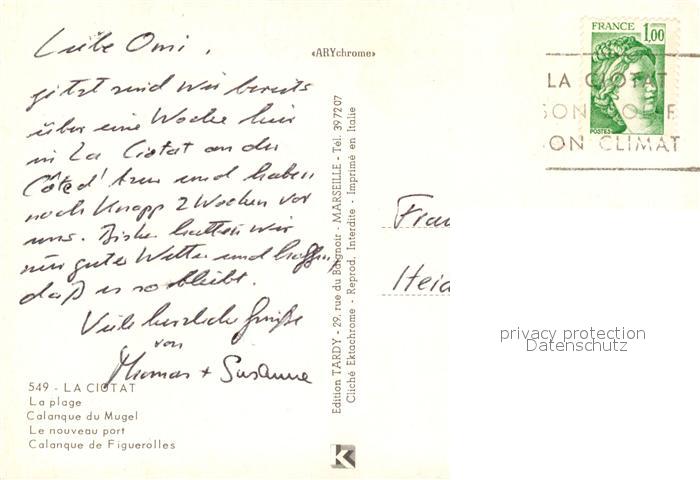 Liebe Omi,
jetzt sind wir bereits
über eine Woche hier
in La Ciotat an der
Côte d'Azur und haben
noch knapp 2 Wochen vor
uns. Bisher hatten wir
nur gutes Wetter und hoffen,
daß es so bleibt.
Viele herzliche Grüße
von
Thomas + Susanne
549 - LA CIOTAT
La plage
Calanque du Mugel
Le nouveau port
Calanque de Figuerolles
«ARYchrome»
Edition TARDY - 29, rue du Baignoir - MARSEILLE - Tél. 397207
Cliché Ektachrome - Reprod. Interdite - Imprimé en Italie
K
FRANCE 1,00
POSTES
LA CIOTAT
SON GOLFE
SON CLIMAT
Frau
Heid
privacy protection
Datenschutz